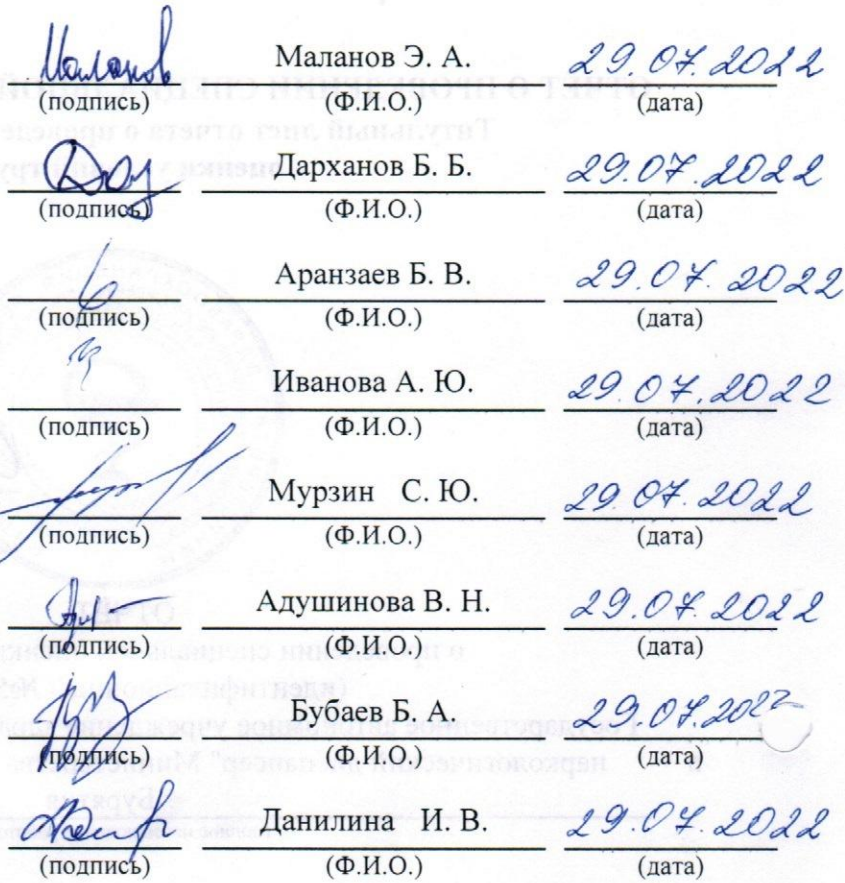 Маланов Маланов Э. А. 29.07.2022
(подпись) (Ф.И.О.) (дата)
Дарханов Б. Б. 29.07.2022
(подпись) (Ф.И.О.) (дата)
Аранзаев Б. В. 29.07.2022
(подпись) (Ф.И.О.) (дата)
Иванова А. Ю. 29.07.2022
(подпись) (Ф.И.О.) (дата)
Мурзин С. Ю. 29.07.2022
(подпись) (Ф.И.О.) (дата)
Адушинова В. Н. 29.07.2022
(подпись) (Ф.И.О.) (дата)
Бубаев Б. А. 29.07.2022
(подпись) (Ф.И.О.) (дата)
Данилина И. В. 29.07.2022
(подпись) (Ф.И.О.) (дата)